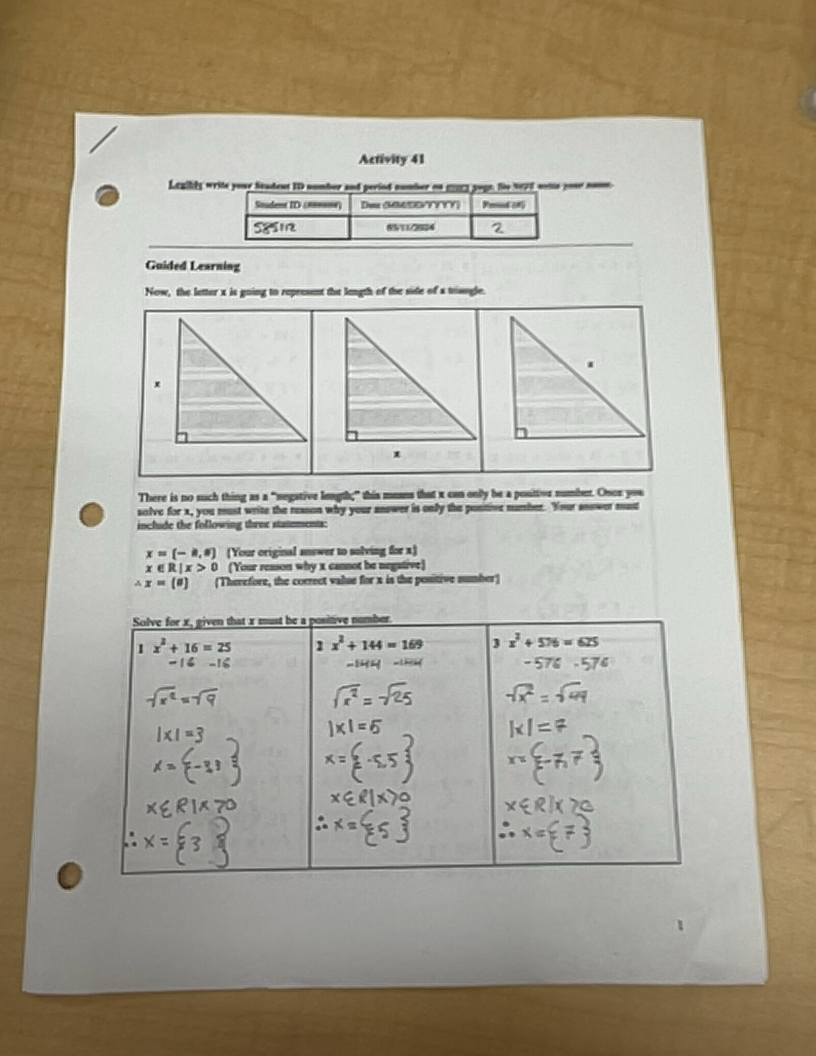 Activity 41
Legibly write your Student ID number and period number on every page. Do NOT write your name.
Student ID (######) Date (MM/DD/YYYY) Period (#)
585112 03/11/2024 2
Guided Learning
Now, the letter x is going to represent the length of the side of a triangle.
x
x
x
There is no such thing as a "negative length;" this means that x can only be a positive number. Once you
solve for x, you must write the reason why your answer is only the positive number. Your answer must
include the following three statements:
x = {− #, #} [Your original answer to solving for x]
x ∈ ℝ | x > 0 [Your reason why x cannot be negative]
∴ x = {#} [Therefore, the correct value for x is the positive number]
Solve for x, given that x must be a positive number.
1 x² + 16 = 25
-16 -16
√x² = √9
|x| = 3
x = {-3,3}
x ∈ R | x > 0
∴ x = {3}
2 x² + 144 = 169
-144 -144
√x² = √25
|x| = 5
x = {-5,5}
x ∈ R | x > 0
∴ x = {5}
3 x² + 576 = 625
-576 -576
√x² = √49
|x| = 7
x = {-7,7}
x ∈ R | x > 0
∴ x = {7}
1